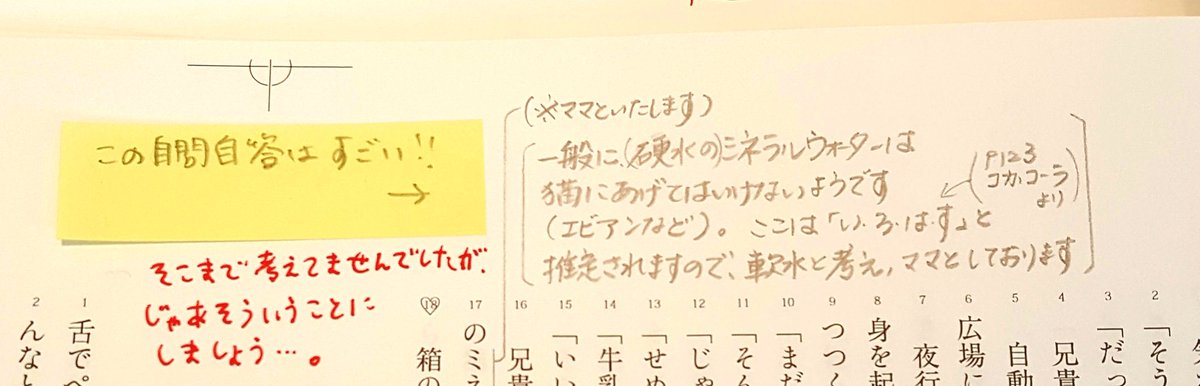 この自問自答はすごい!!
→
そこまで考えてませんでしたが、
じゃあそういうことに
しましょう…。
(※ママといたします)
一般に、(硬水の)ミネラルウォーターは
猫にあげてはいけないようです
(エビアンなど)。ここは「い・ろ・は・す」と
推定されますので、軟水と考え、ママとしております
(P123
コカ・コーラ
より)
2
「そう
3
「だっ
4
兄貴
5
自動
6
広場に
7
夜行
8
身を起
9
つつく
10
「まだ
11
「そん
12
「じゃ
13
「せめ
14
「牛乳
15
「いい
16
兄貴
17
のミネ
18
箱の
1
舌でペ
2
んなと